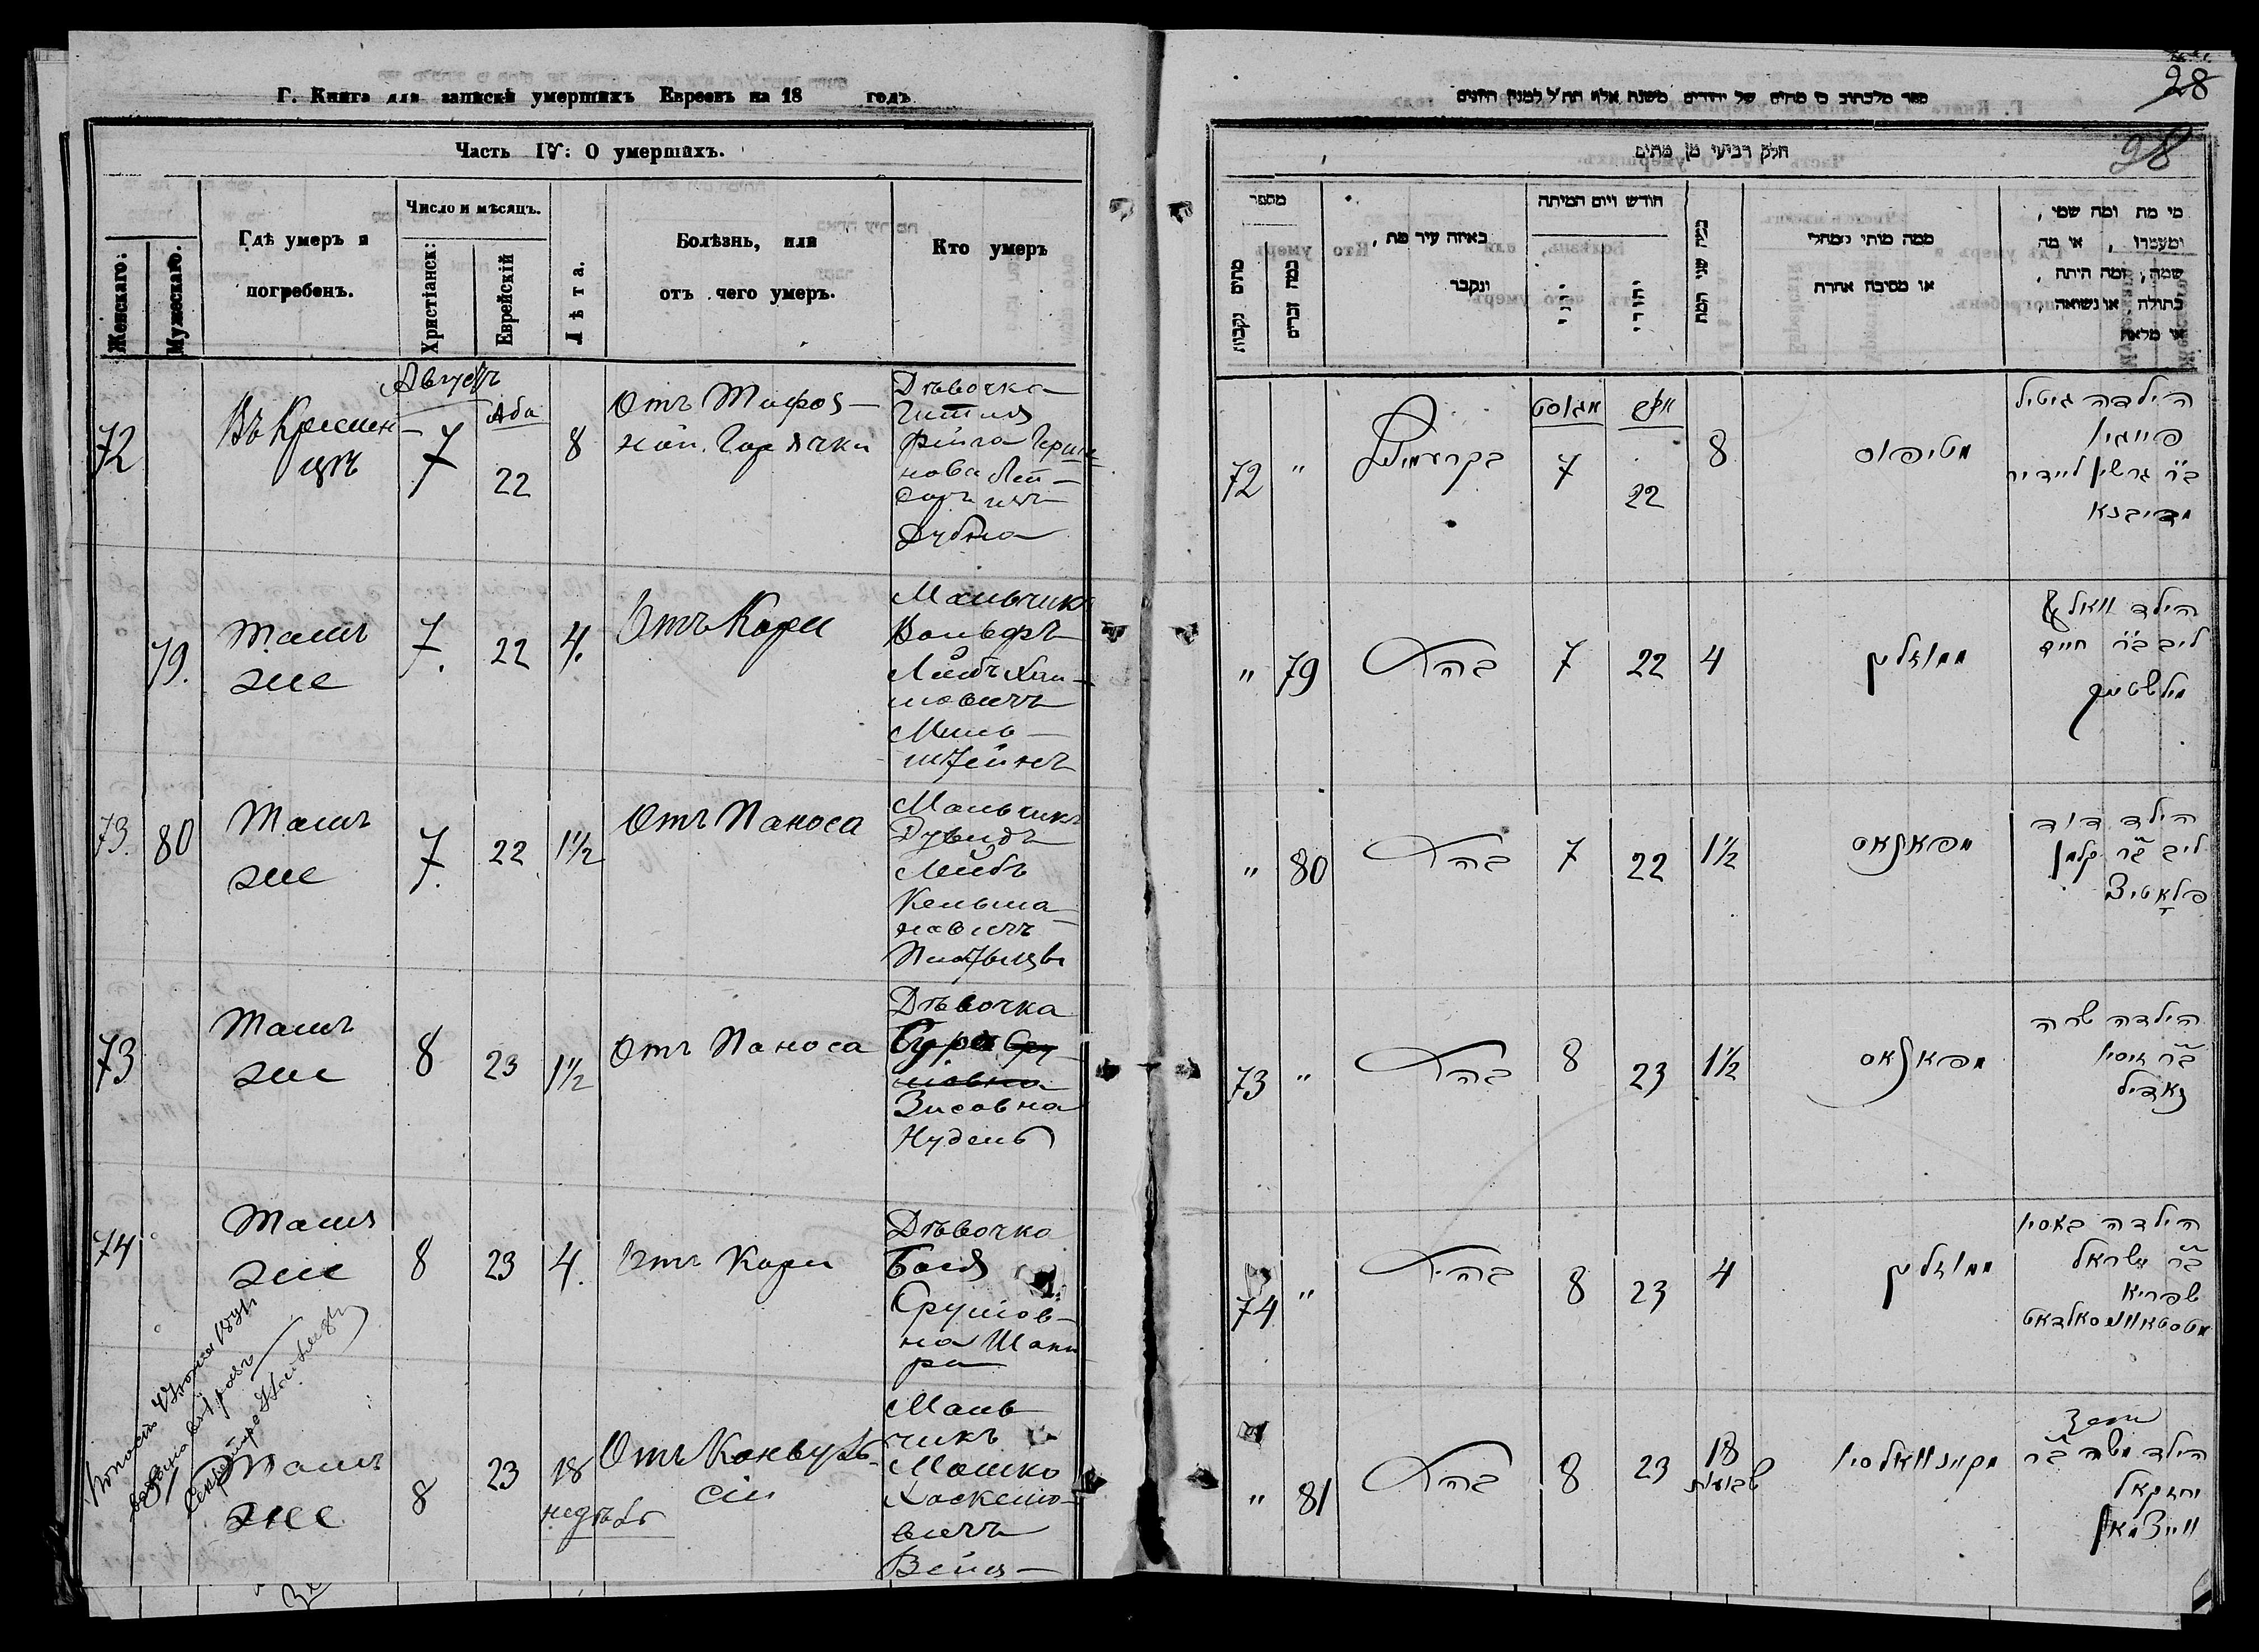 Г. Книга для записки умершихъ Евреевъ на 18 годъ
Часть IV: О умершихъ.
Женскаго:
Мужескаго.
Гдѣ умеръ и
погребенъ.
Число и мѣсяцъ.
Христіанск:
Еврейскій
Лѣта.
Болѣзнь, или
отъ чего умеръ.
Кто умеръ
72
Въ Кремен-
цѣ
Августъ
7
Аба
22
8
Отъ Тифоз-
ной Горячки
Дѣвочка
Гитля
Фейга Герш-
нова
Дубна
79.
Тамъ
же
7.
22
4.
Отъ Кори
Мальчикъ
Вольфъ
Лейбъ Хаи-
мовичъ
Миль-
штейнъ
73.
80
Тамъ
же
7.
22
1½
Отъ Паноса
Мальчикъ
Дувидъ
Лейбъ
Кельма-
новичъ
73
Тамъ
же
8
23
1½
Отъ Паноса
Дѣвочка
Сура
Зисовна
Нудель
74
Тамъ
же
8
23
4.
Отъ Кори
Дѣвочка
Бася
Сруков-
на Шапи
ра
Тамъ
же
8
23
18
недѣль
Отъ Конвуль-
сіи
Маль
чикъ
Мошко
Хаскело-
вичъ
Вейц-
28
28
ספר מלכתוב מ מתים של יהודים משנת אלף תת״ל למנין הזנים
חלק רביעי מן מתים
מספר
מתים נקבות
כמה זכרים
באיזה עיר מת,
ונקבר
חודש ויום המיתה
יוני
יהודי
כמה שני המת
ממה מותי ממחלי
או מסיבה אחרת
מי מת ומה שמו,
ומעמדו, או מה
שמה, ומה היתה,
בתולה, או נשואה,
או מלאה
72
"
בקרעמניץ
אגוסט
7
אב
22
8
מטיפוס
הילדה גיטיל
פייגא
ב״ר גרשון ליידיר
מדיבנא
"
79
כהנ״ל
7
22
4
ממאזלין
הילד וואלף
ליב ב״ר חיים
מילשטיין
"
80
כהנ״ל
7
22
1½
מפאנאס
הילד דוד
ליב ב״ר קלמן
73
"
כהנ״ל
8
23
1½
מפאנאס
הילדה שרה
ב״ר זיסיא
נאדיל
74
"
כהנ״ל
8
23
4
ממאזלין
הילדה באסיא
ב״ר ישראל
שפירא
"
81
כהנ״ל
8
23
18
שבועות
מקאנוואלסיא
הילד משה ב״ר
יחזקאל
ווייצמאן